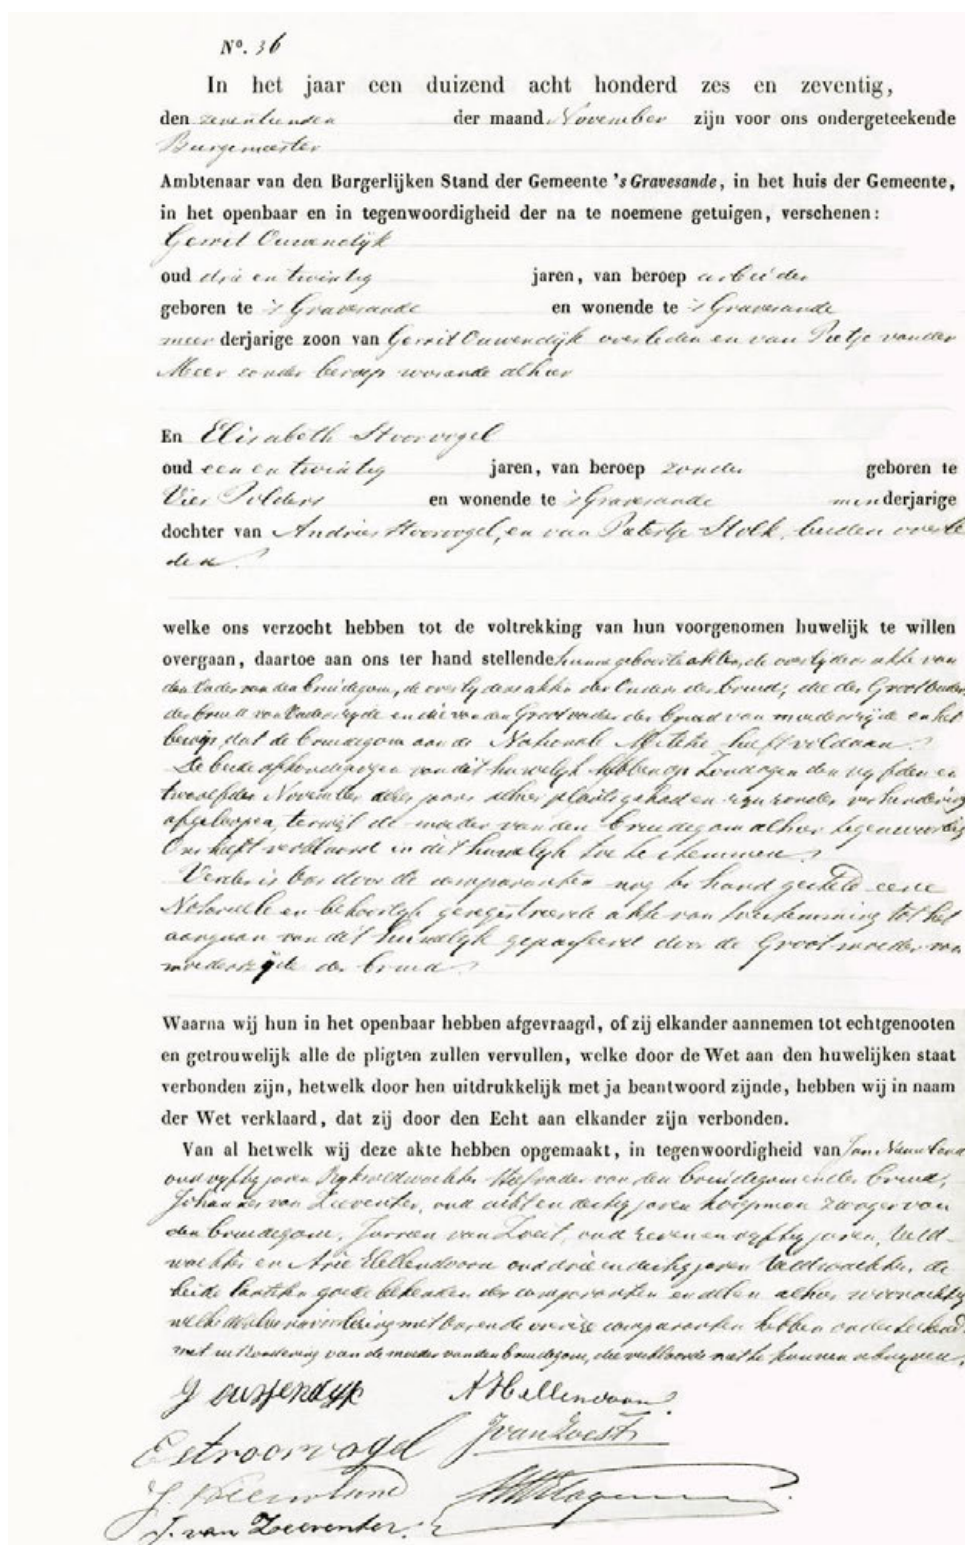 Nº. 36
In het jaar een duizend acht honderd zes en zeventig,
den zeventienden der maand November zijn voor ons ondergeteekende
Burgemeester
Ambtenaar van den Burgerlijken Stand der Gemeente 's Gravesande, in het huis der Gemeente,
in het openbaar en in tegenwoordigheid der na te noemene getuigen, verschenen:
Gerrit Ouwendijk
oud drie en twintig jaren, van beroep arbeider
geboren te 's Gravesande en wonende te 's Gravesande
meer derjarige zoon van Gerrit Ouwendijk overleden en van Pietje van der
Meer zonder beroep wonende alhier
En Elisabeth Stoorvogel
oud een en twintig jaren, van beroep zonder geboren te
Vier Polders en wonende te 's Gravesande minderjarige
dochter van Andries Stoorvogel, en van Pietertje Stolk, beiden overle
den.
welke ons verzocht hebben tot de voltrekking van hun voorgenomen huwelijk te willen
overgaan, daartoe aan ons ter hand stellende hunne geboorteakten, de overlijdens akte van
den Vader van den bruidegom, de overlijdens akten der Ouders der bruid; die der Grootouders
der bruid van Vaderszijde en die van den Grootvader der bruid van moederszijde en het
bewijs, dat de bruidegom aan de Nationale Militie heeft voldaan.
De beide afkondigingen van dit huwelijk hebben op Zondagen den vijfden en
twaalfden November dezes jaars alhier plaats gehad en zijn zonder verhindering
afgeloopen, terwijl de moeder van den bruidegom alhier tegenwoordig
Ons heeft verklaard in dit huwelijk toe te stemmen.
Verder is ons door de comparanten nog ter hand gesteld eene
Notarieele en behoorlijk geregistreerde akte van toestemming tot het
aangaan van dit huwelijk gepasseerd door de Grootmoeder van
moederszijde der bruid.
Waarna wij hun in het openbaar hebben afgevraagd, of zij elkander aannemen tot echtgenooten
en getrouwelijk alle de pligten zullen vervullen, welke door de Wet aan den huwelijken staat
verbonden zijn, hetwelk door hen uitdrukkelijk met ja beantwoord zijnde, hebben wij in naam
der Wet verklaard, dat zij door den Echt aan elkander zijn verbonden.
Van al hetwelk wij deze akte hebben opgemaakt, in tegenwoordigheid van Jan
oud vijftig jaren Rijksveldwachter Stiefvader van den bruidegom en der bruid,
Johannes van Zeeventer, oud acht en dertig jaren koopman zwager van
den bruidegom, Jurrien van Zoest, oud zeven en vijftig jaren, Veld-
wachter en Arie Hellendoorn oud drie en dertig jaren Veldwachter, de
beide laatsten goede bekenden der comparanten en allen alhier woonachtig
welke na voorlezing met ons en de comparanten hebben onderteekend
met uitzondering van de moeder van den bruidegom, die verklaarde niet te kunnen schrijven.
G Ouwendijk A Hellendoorn
E Stroorvogel J van Zoest
J.
J. van Zeeventer